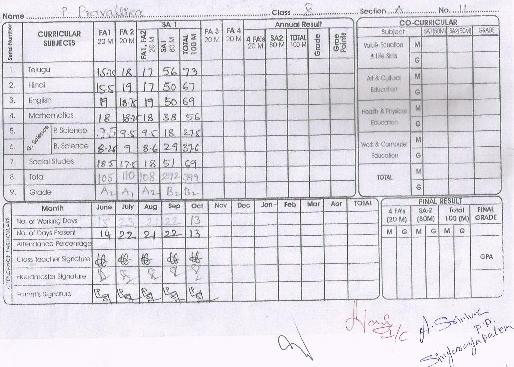 Name P. Class 8 Section A No. 11
Serial Number CURRICULAR SUBJECTS FA1 20 M FA 2 20 M SA 1 FA1, FA2 20 M SA 1 80 M TOTAL 100 M Annual Result FA 3 20 M FA 4 20 M 4 FA's 20 M SA2 80 M TOTAL 100 M Grade Grade Points
1. Telugu 18 17 56 73
2. Hindi 15.5 19 17 50 67
3. English 19 18.5 19 50 69
4. Mathematics 18 18 38 56
Science
5. P. Science 9.5 9.5 18 27.5
6. B. Science 9 8.6 29 37.6
7. Social Studies 18.5 17.5 18 51 69
8. Total 105 110 108 292 399
9. Grade A2 A1 A2 B2 B2
CO-CURRICULAR
Subject SA1(50M) SA2(50M) GRADE
Value Education & Life Skills M G
Art & Cultural Education M G
Health & Physical Education M G
Work & Computer Education M G
TOTAL M G
Month June July Aug Sep Oct Nov Dec Jan Feb Mar Apr TOTAL
No. of Working Days 22 13
No. of Days Present 14 22 21 22 13
Attendance Percentage
Class Teacher Signature
Headmaster Signature
Parent's Signature
FINAL RESULT
4 FA's (20 M) SA-2 (80 M) Total (100 M) FINAL GRADE
M G M G M G
GPA